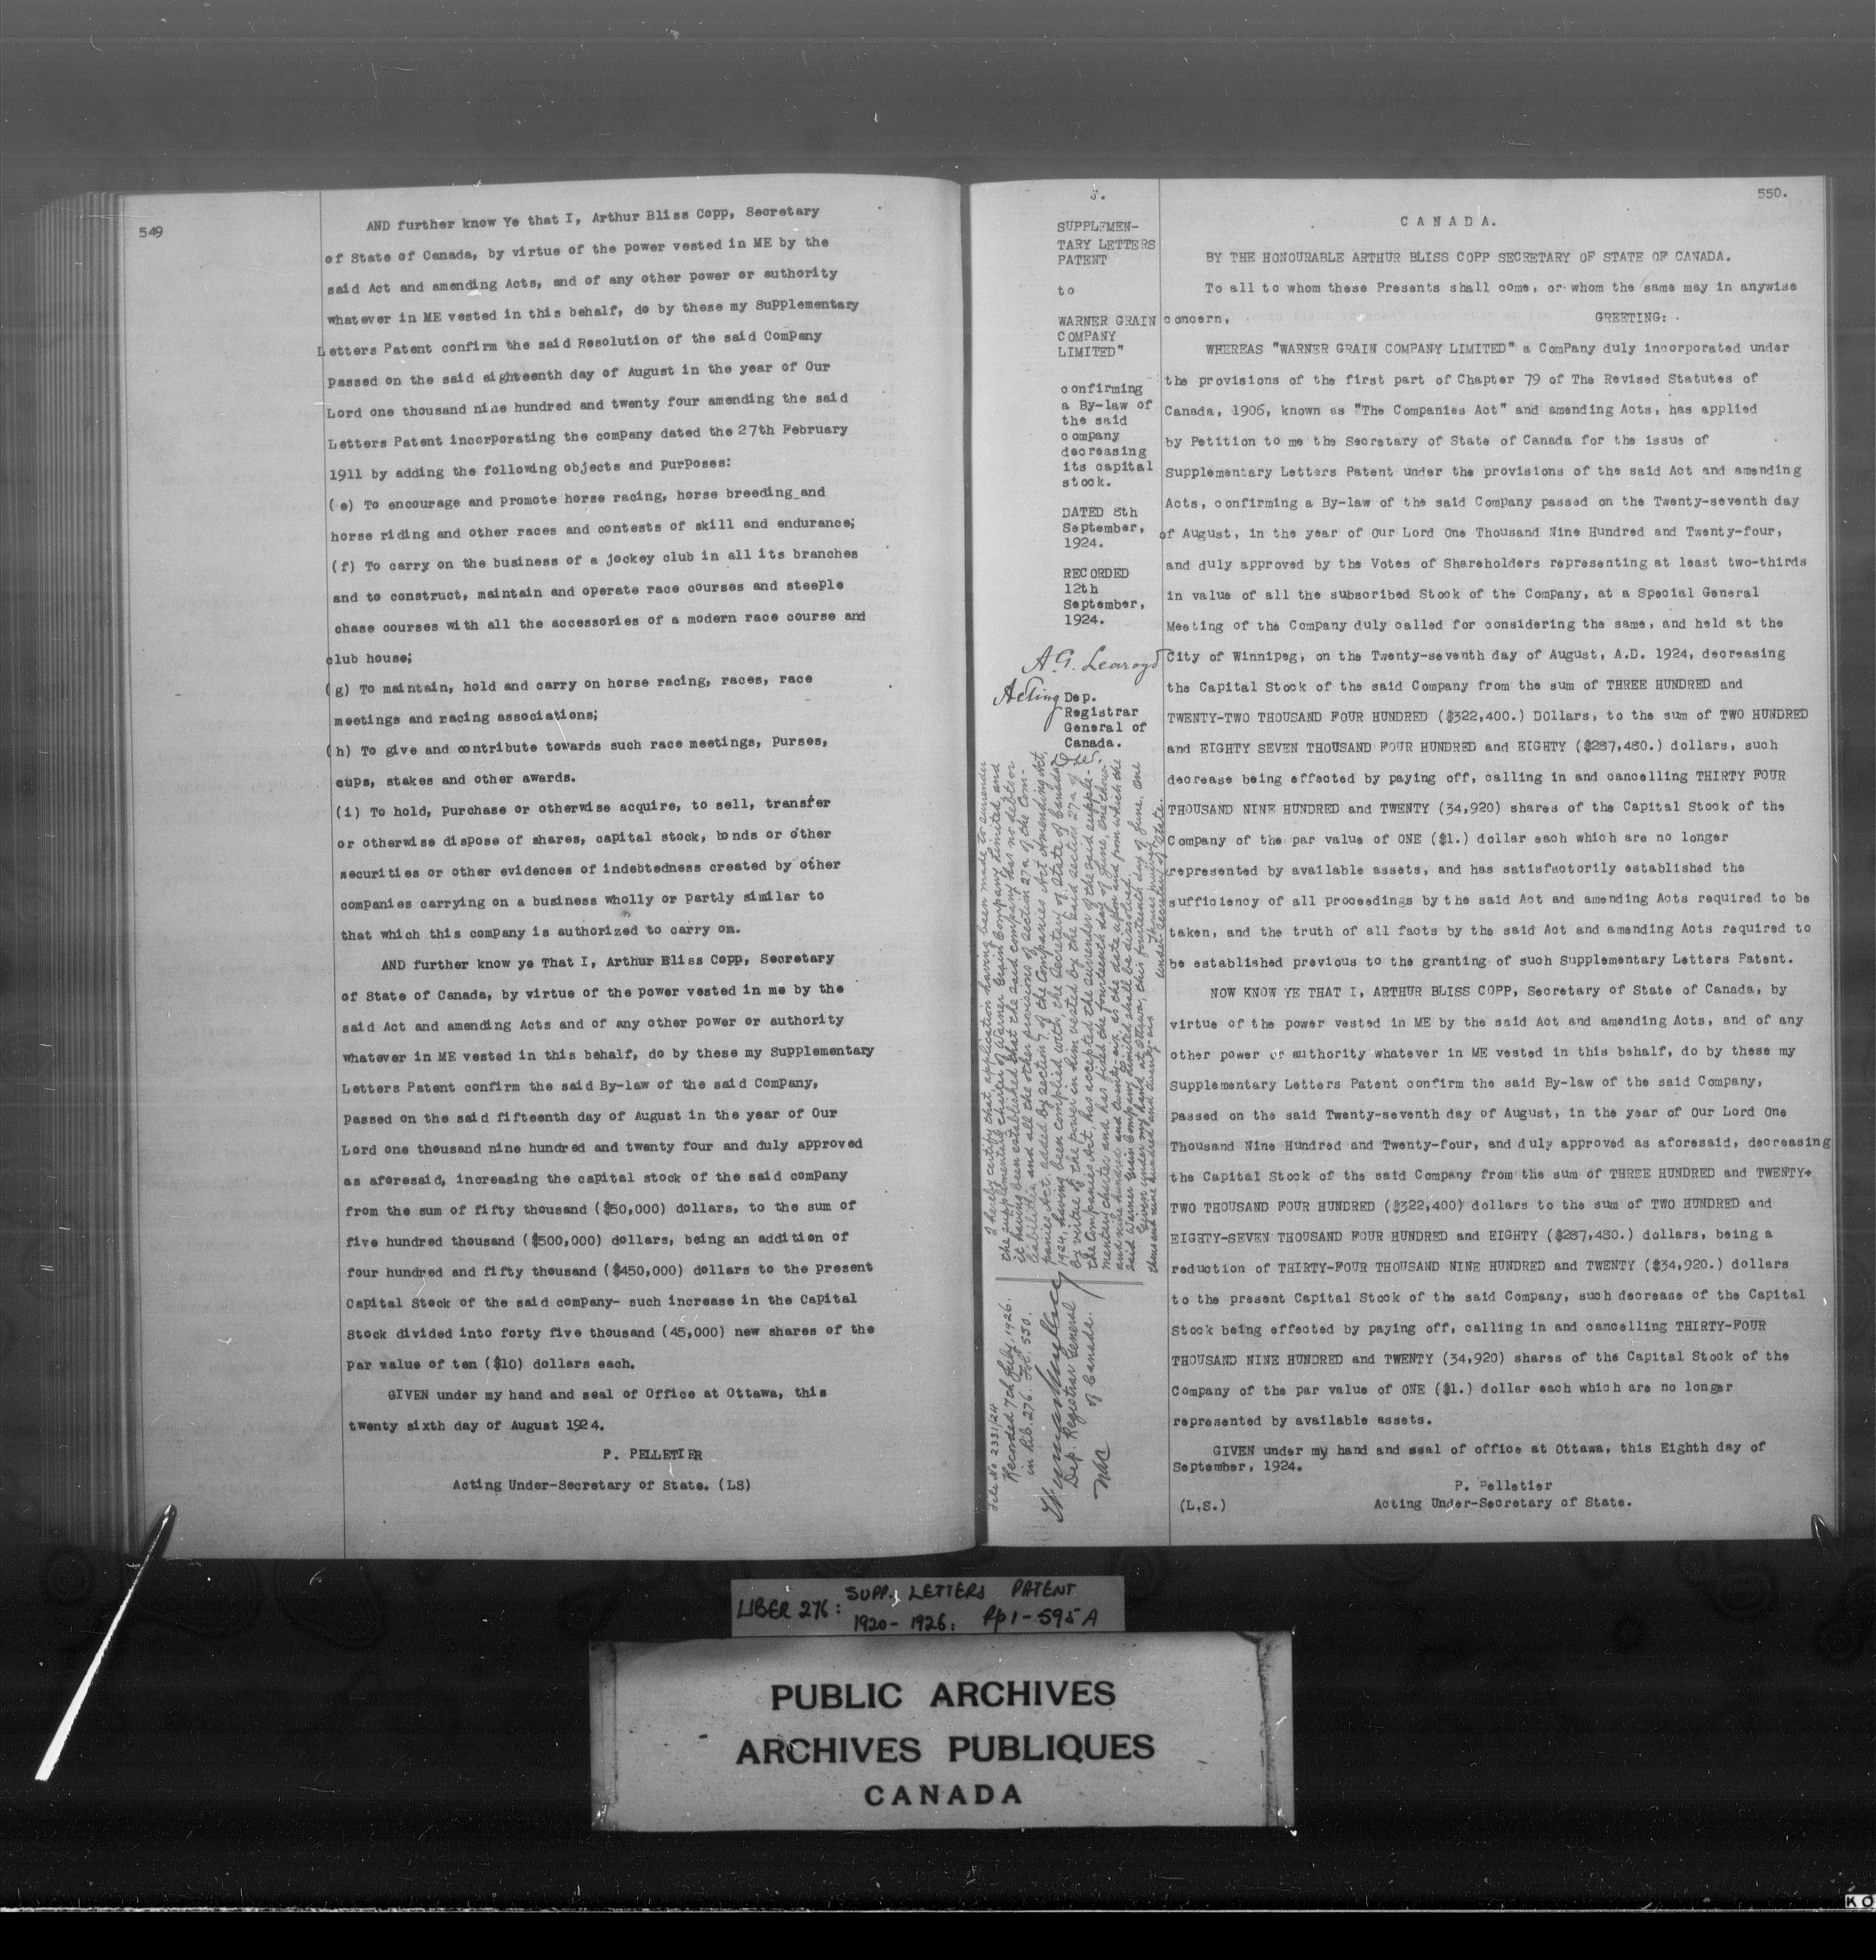 549
AND further know Ye that I, Arthur Bliss Copp, Secretary
of State of Canada, by virtue of the power vested in ME by the
said Act and amending Acts, and of any other power or authority
whatever in ME vested in this behalf, do by these my Supplementary
Letters Patent confirm the said Resolution of the said Company
passed on the said eighteenth day of August in the year of Our
Lord one thousand nine hundred and twenty four amending the said
Letters Patent incorporating the company dated the 27th February
1911 by adding the following objects and purposes:
(e) To encourage and promote horse racing, horse breeding and
horse riding and other races and contests of skill and endurance;
(f) To carry on the business of a jockey club in all its branches
and to construct, maintain and operate race courses and steeple
chase courses with all the accessories of a modern race course and
club house;
(g) To maintain, hold and carry on horse racing, races, race
meetings and racing associations;
(h) To give and contribute towards such race meetings, Purses,
cups, stakes and other awards.
(i) To hold, Purchase or otherwise acquire, to sell, transfer
or otherwise dispose of shares, capital stock, bonds or other
securities or other evidences of indebtedness created by other
companies carrying on a business wholly or partly similar to
that which this company is authorized to carry on.
AND further know ye That I, Arthur Bliss Copp, Secretary
of State of Canada, by virtue of the power vested in me by the
said Act and amending Acts and of any other power or authority
whatever in ME vested in this behalf, do by these my Supplementary
Letters Patent confirm the said By-law of the said Company,
passed on the said fifteenth day of August in the year of Our
Lord one thousand nine hundred and twenty four and duly approved
as aforesaid, increasing the capital stock of the said company
from the sum of fifty thousand ($50,000) dollars, to the sum of
five hundred thousand ($500,000) dollars, being an addition of
four hundred and fifty thousand ($450,000) dollars to the present
Capital Stock of the said company- such increase in the Capital
Stock divided into forty five thousand (45,000) new shares of the
par value of ten ($10) dollars each.
GIVEN under my hand and seal of Office at Ottawa, this
twenty sixth day of August 1924.
P. PELLETIER
Acting Under-Secretary of State. (LS)
550.
SUPPLEMEN-
TARY LETTERS
PATENT
to
WARNER GRAIN
COMPANY
LIMITED"
confirming
a By-law of
the said
company
decreasing
its capital
stock.
DATED 8th
September,
1924.
RECORDED
12th
September,
1924.
A. G. Learoyd
Acting Dep.
Registrar
General of
Canada.
I hereby certify that, application having been made to surrender
the supplementary charter of Warner Grain Company Limited, and
it having been established that the said company has no debts or
liabilities and all the other provisions of section 27a of the Com-
panies Act, added by section 7 of the Companies Act Amending Act,
1924, having been complied with, the Secretary of State of Canada
by virtue of the power in him vested by the said section 27a of
the Companies Act, has accepted the surrender of the said supple-
mentary charter and has fixed the fourteenth day of June, one thou-
sand nine hundred and twenty-six, as the date upon and from which the
said Warner Grain Company Limited shall be dissolved.
Given under my hand at Ottawa, this fourteenth day of June, one
thousand nine hundred and twenty-six.
Thomas Mulvey
Under Secretary of State.
File No 2331/24
Recorded 7th July, 1926.
in Lib. 276. Fol. 550.
Dep. Registrar General
of Canada.
CANADA.
BY THE HONOURABLE ARTHUR BLISS COPP SECRETARY OF STATE OF CANADA.
To all to whom these Presents shall come, or whom the same may in anywise
concern, GREETING:
WHEREAS "WARNER GRAIN COMPANY LIMITED" a Company duly incorporated under
the provisions of the first part of Chapter 79 of The Revised Statutes of
Canada, 1906, known as "The Companies Act" and amending Acts, has applied
by Petition to me the Secretary of State of Canada for the issue of
Supplementary Letters Patent under the provisions of the said Act and amending
Acts, confirming a By-law of the said Company passed on the Twenty-seventh day
of August, in the year of Our Lord One Thousand Nine Hundred and Twenty-four,
and duly approved by the Votes of Shareholders representing at least two-thirds
in value of all the subscribed Stock of the Company, at a Special General
Meeting of the Company duly called for considering the same, and held at the
City of Winnipeg, on the Twenty-seventh day of August, A.D. 1924, decreasing
the Capital Stock of the said Company from the sum of THREE HUNDRED and
TWENTY-TWO THOUSAND FOUR HUNDRED ($322,400.) Dollars, to the sum of TWO HUNDRED
and EIGHTY SEVEN THOUSAND FOUR HUNDRED and EIGHTY ($287,480.) dollars, such
decrease being effected by paying off, calling in and cancelling THIRTY FOUR
THOUSAND NINE HUNDRED and TWENTY (34,920) shares of the Capital Stock of the
Company of the par value of ONE ($1.) dollar each which are no longer
represented by available assets, and has satisfactorily established the
sufficiency of all proceedings by the said Act and amending Acts required to be
taken, and the truth of all facts by the said Act and amending Acts required to
be established previous to the granting of such Supplementary Letters Patent.
NOW KNOW YE THAT I, ARTHUR BLISS COPP, Secretary of State of Canada, by
virtue of the power vested in ME by the said Act and amending Acts, and of any
other power or authority whatever in ME vested in this behalf, do by these my
Supplementary Letters Patent confirm the said By-law of the said Company,
passed on the said Twenty-seventh day of August, in the year of Our Lord One
Thousand Nine Hundred and Twenty-four, and duly approved as aforesaid, decreasing
the Capital Stock of the said Company from the sum of THREE HUNDRED and TWENTY-
TWO THOUSAND FOUR HUNDRED ($322,400) dollars to the sum of TWO HUNDRED and
EIGHTY-SEVEN THOUSAND FOUR HUNDRED and EIGHTY ($287,480.) dollars, being a
reduction of THIRTY-FOUR THOUSAND NINE HUNDRED and TWENTY ($34,920.) dollars
to the present Capital Stock of the said Company, such decrease of the Capital
Stock being effected by paying off, calling in and cancelling THIRTY-FOUR
THOUSAND NINE HUNDRED and TWENTY (34,920) shares of the Capital Stock of the
Company of the par value of ONE ($1.) dollar each which are no longer
represented by available assets.
GIVEN under my hand and seal of office at Ottawa, this Eighth day of
September, 1924.
P. Pelletier
(L.S.) Acting Under-Secretary of State.
LIBER 276: SUPP. LETTERS PATENT
1920-1926: Pp 1-595A
PUBLIC ARCHIVES
ARCHIVES PUBLIQUES
CANADA
KO